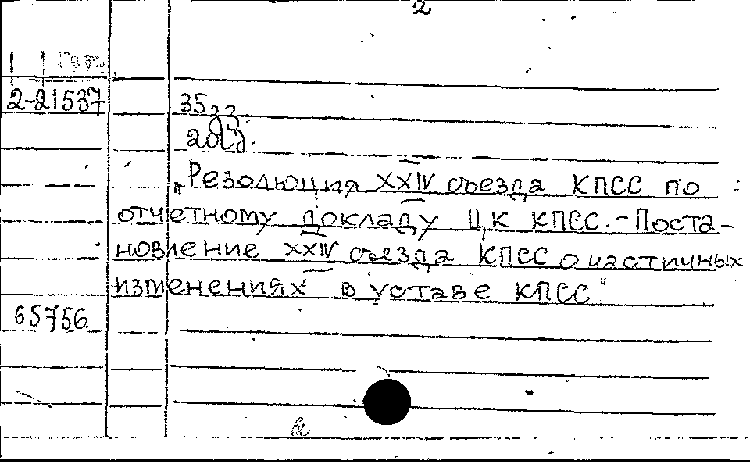 2
2-21537
35 зз.
"Резолюция XXIV съезда КПСС по
отчетному докладу Ц,К КПСС. - Поста-
новление XXIV съезда КПСС о частичных
изменениях в уставе КПСС"
65756